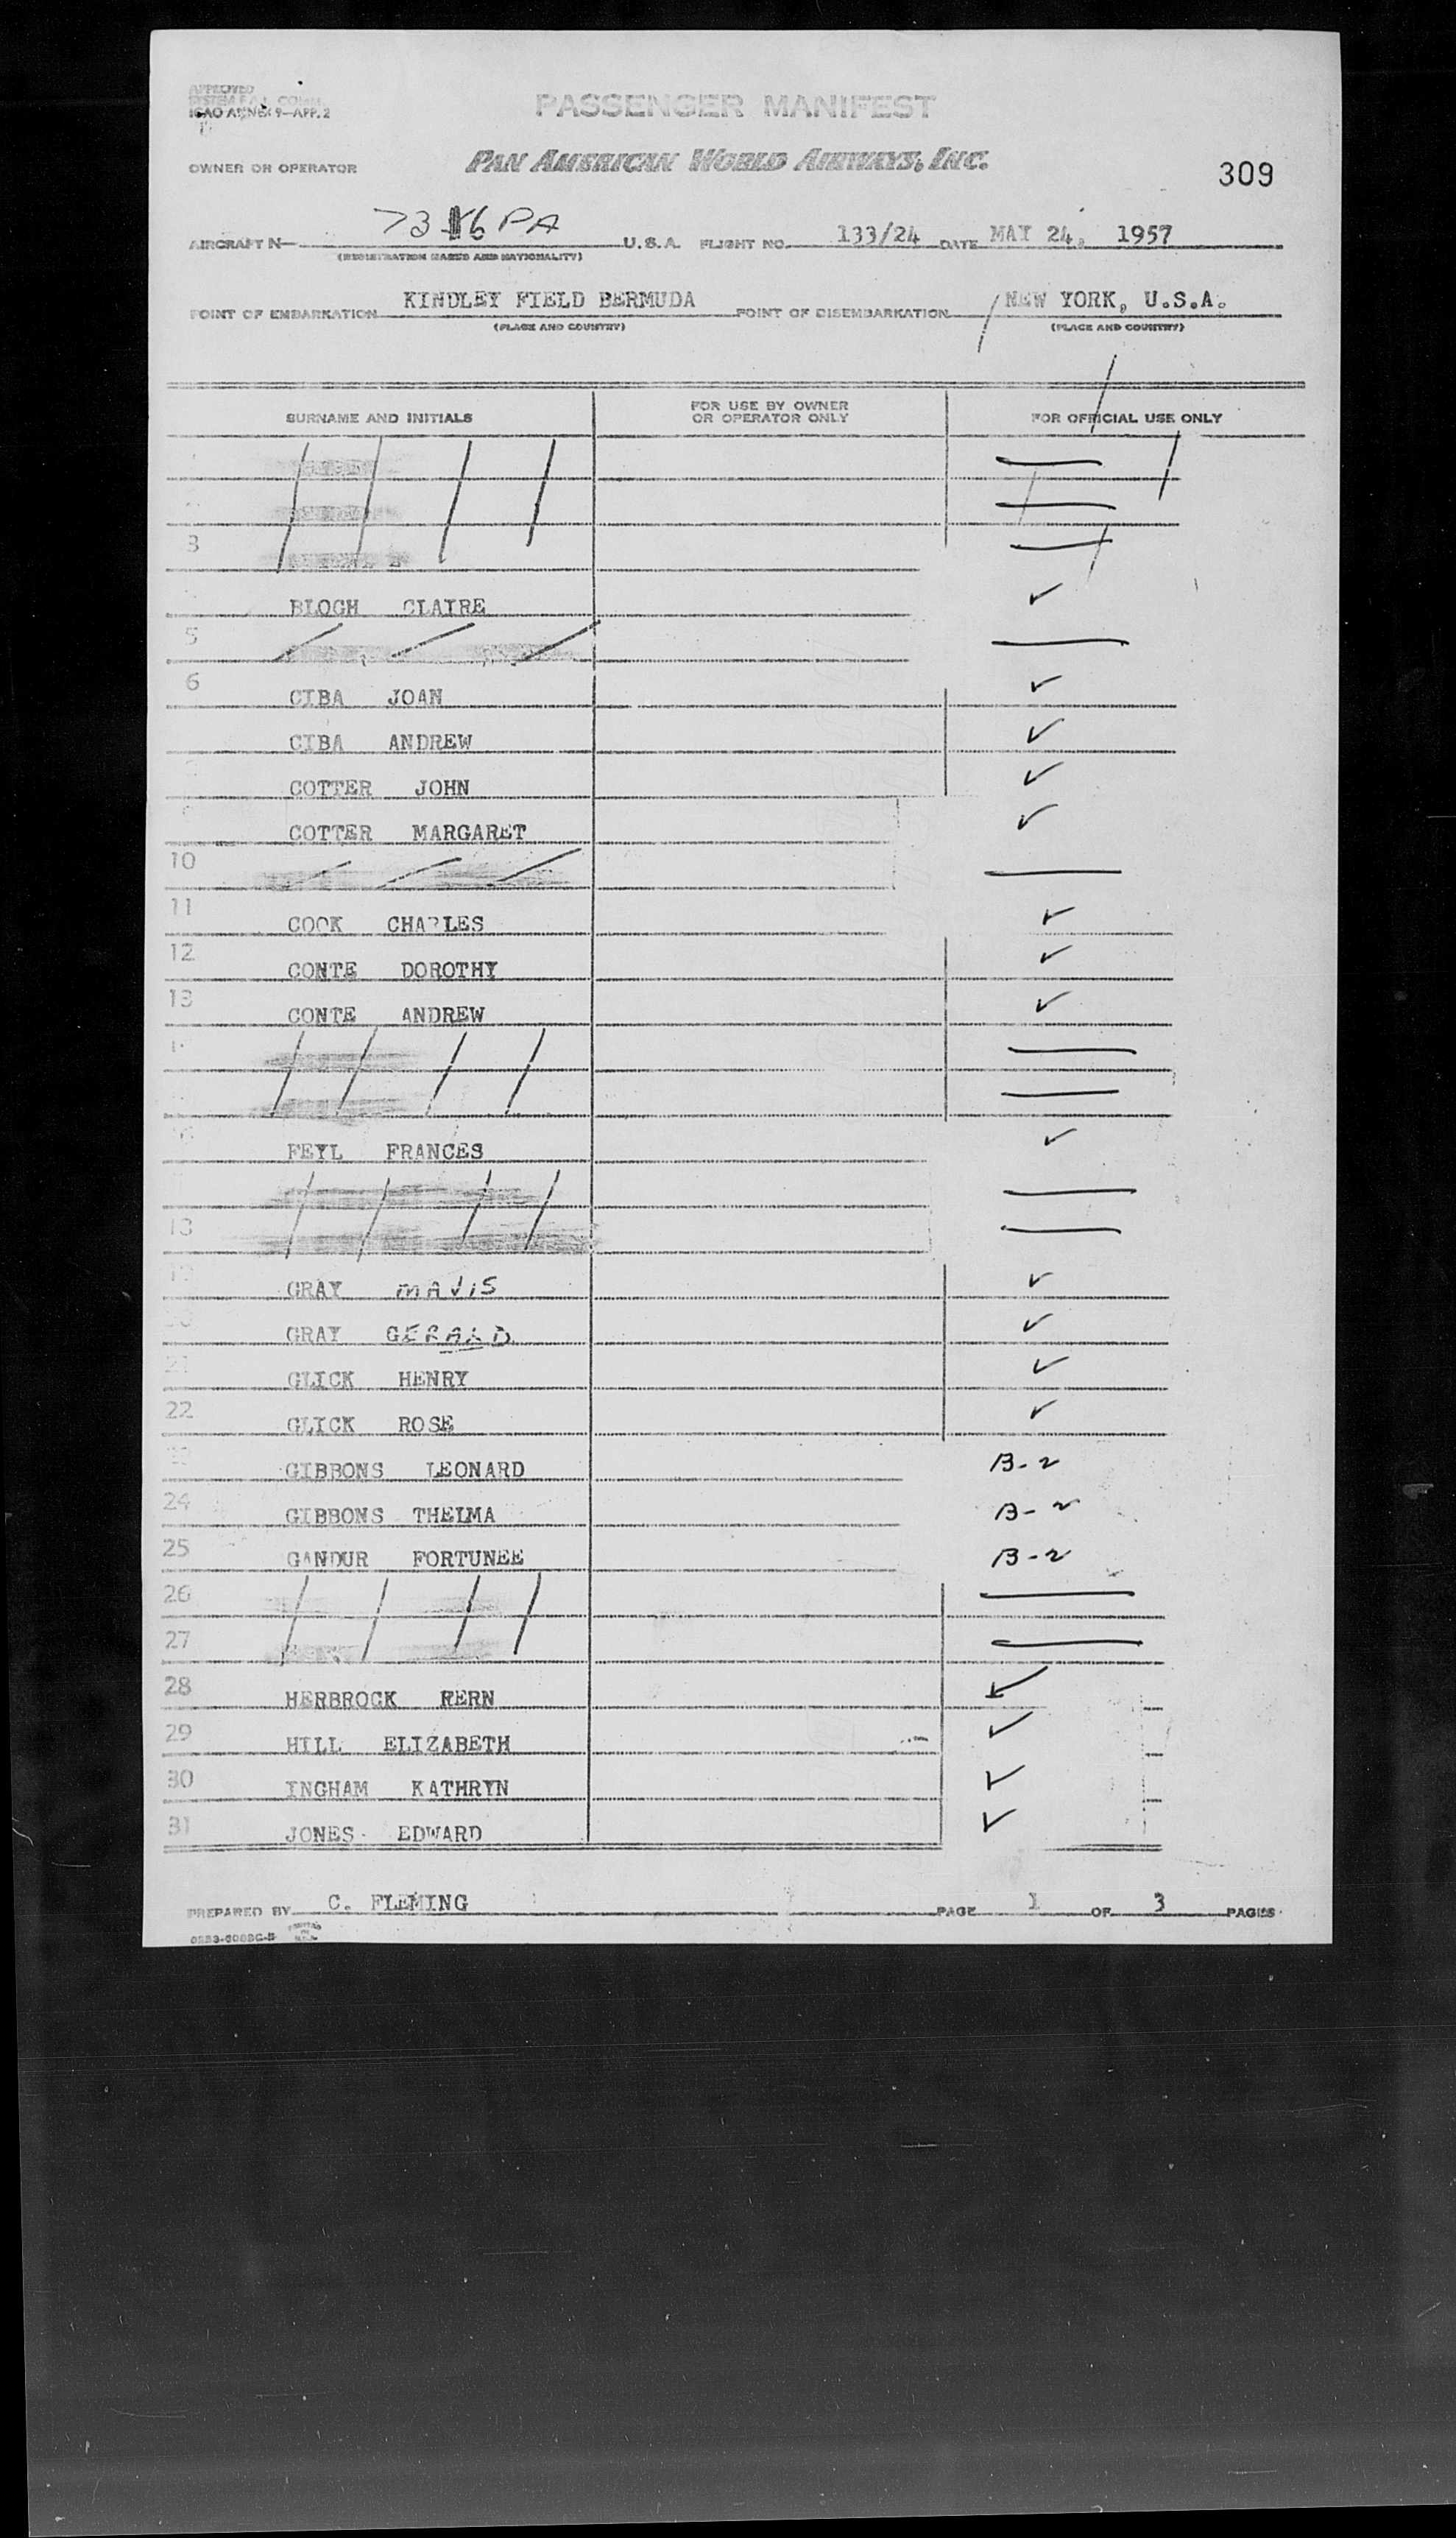 APPROVED
ICAO ANNEX 9—APP. 2
PASSENGER MANIFEST
OWNER OR OPERATOR
PAN AMERICAN WORLD AIRWAYS, INC.
309
AIRCRAFT N— 6PA U. S. A. FLIGHT NO. 133/24 DATE MAY 24, 1957
(REGISTRATION MARKS AND NATIONALITY)
POINT OF EMBARKATION KINDLEY FIELD BERMUDA POINT OF DISEMBARKATION NEW YORK, U.S.A.
(PLACE AND COUNTRY) (PLACE AND COUNTRY)
SURNAME AND INITIALS FOR USE BY OWNER OR OPERATOR ONLY FOR OFFICIAL USE ONLY
3
BLOCH CLAIRE ✓
5
6 CIBA JOAN ✓
CIBA ANDREW ✓
COTTER JOHN ✓
COTTER MARGARET ✓
10
11 COOK CHARLES ✓
12 CONTE DOROTHY ✓
13 CONTE ANDREW ✓
FEYL FRANCES ✓
18
19 GRAY MAVIS ✓
20 GRAY GERALD ✓
21 GLICK HENRY ✓
22 GLICK ROSE ✓
23 GIBBONS LEONARD B-2
24 GIBBONS THELMA B-2
25 GANDUR FORTUNEE B-2
26
27
28 HERBROCK RERN ✓
29 HILL ELIZABETH ✓
30 INGHAM KATHRYN ✓
31 JONES EDWARD ✓
PREPARED BY C. FLEMING PAGE 1 OF 3 PAGES